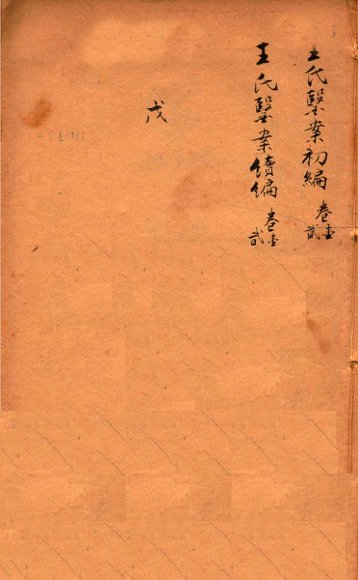 王氏醫案初編 卷壹 貳
王氏醫案續編 卷壹 貳
戊